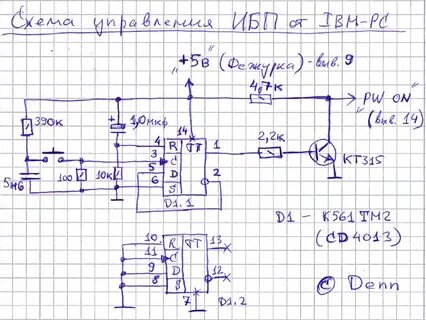 Схема управления ИБП от IBM-PC
"+5в (Дежурка)" - выв. 9
4,7к
"PW ON"
(выв. 14)
390к
1,0мкф
14
4 R TT 1
3 C
5 D
6 S 2
D1.1
2,2к
КТ315
5н6
100
10к
D1 - К561ТМ2
(CD4013)
10 R TT 13
11 C
9 D 12
8 S
7
D1.2
© Denn